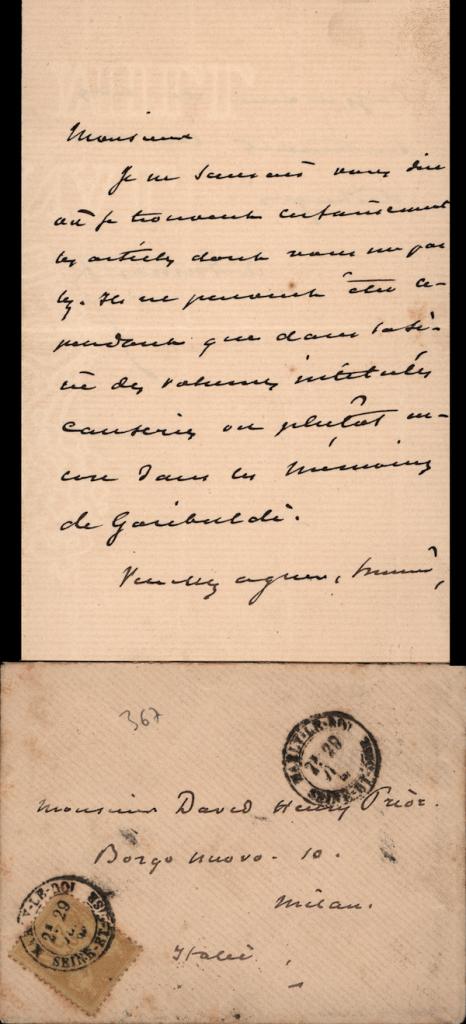 Monsieur
Je ne saurais vous dire
où se trouvent certainement
les articles dont vous me par
lez. Ils ne peuvent être ce-
pendant que dans la sé-
rie des volumes intitulés
causeries ou plutôt en-
core dans les mémoires
de Garibaldi.
Veuillez agréer, Monsieur,
367
MARLY-LE-ROI
29
SEINE-ET-OISE
Monsieur David Henry Prior.
Borgo nuovo. 10.
Milan.
Italie
MARLY-LE-ROI
29
SEINE-ET-OISE